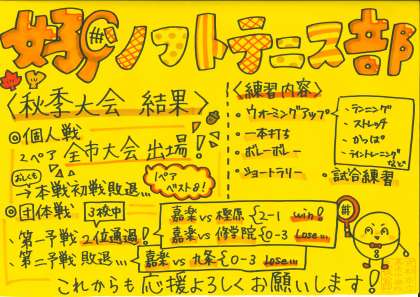 好 ソフトテニス部
〈秋季大会 結果〉
◎個人戦
2ペア 全市大会出場!
おしくも
→本戦初戦敗退…
1ペア
ベスト8!
◎団体戦 3校中
・第一予戦 2位通過!
嘉楽 vs 樫原 {2-1 win!
嘉楽 vs 修学院 {0-3 lose…
・第二予戦 敗退…
嘉楽 vs 九条 {0-3 lose…
〈練習内容〉
・ウォーミングアップ
・ランニング
・ストレッチ
・かっぱ
・ライントレーニング
など
・一本打ち
・ボレーボレー
・ショートラリー
・試合練習
これからも応援よろしくお願いします!